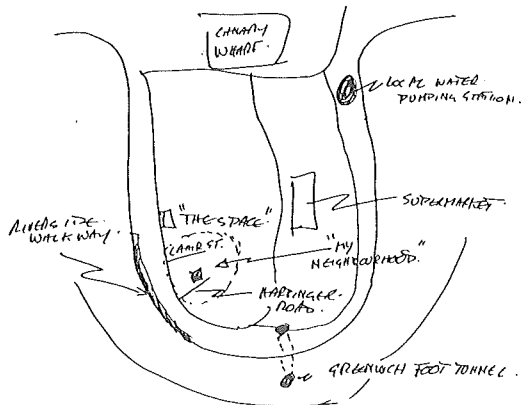 CANARY
WHARF.
LOCAL WATER
PUMPING STATION.
SUPERMARKET.
"THE SPACE."
RIVERSIDE
WALKWAY.
"MY
NEIGHBOURHOOD."
HARBINGER
ROAD.
GREENWICH FOOT TUNNEL.